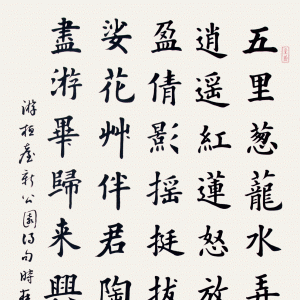 五里葱蘢水弄
逍遥紅蓮怒放
盈倩影摇挺拔
娑花艸伴君陶
盡游畢歸来興
游桓臺新公園得句時在